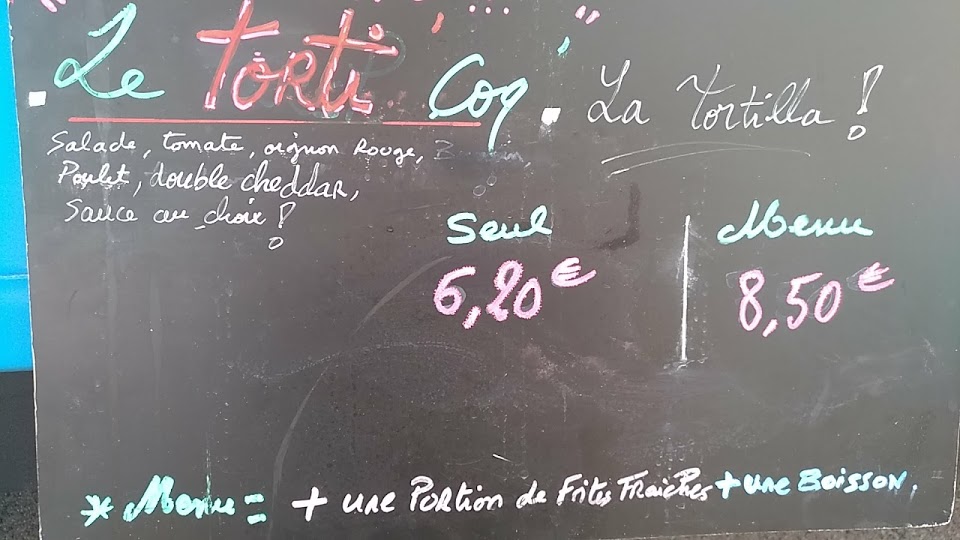 Le Torti Coq . La Tortilla !
Salade, tomate, oignon Rouge,
Poulet, double cheddar,
Sauce au choix !
Seul
Menu
6,20€
8,50€
* Menu = + une Portion de Frites Fraiches + une Boisson.